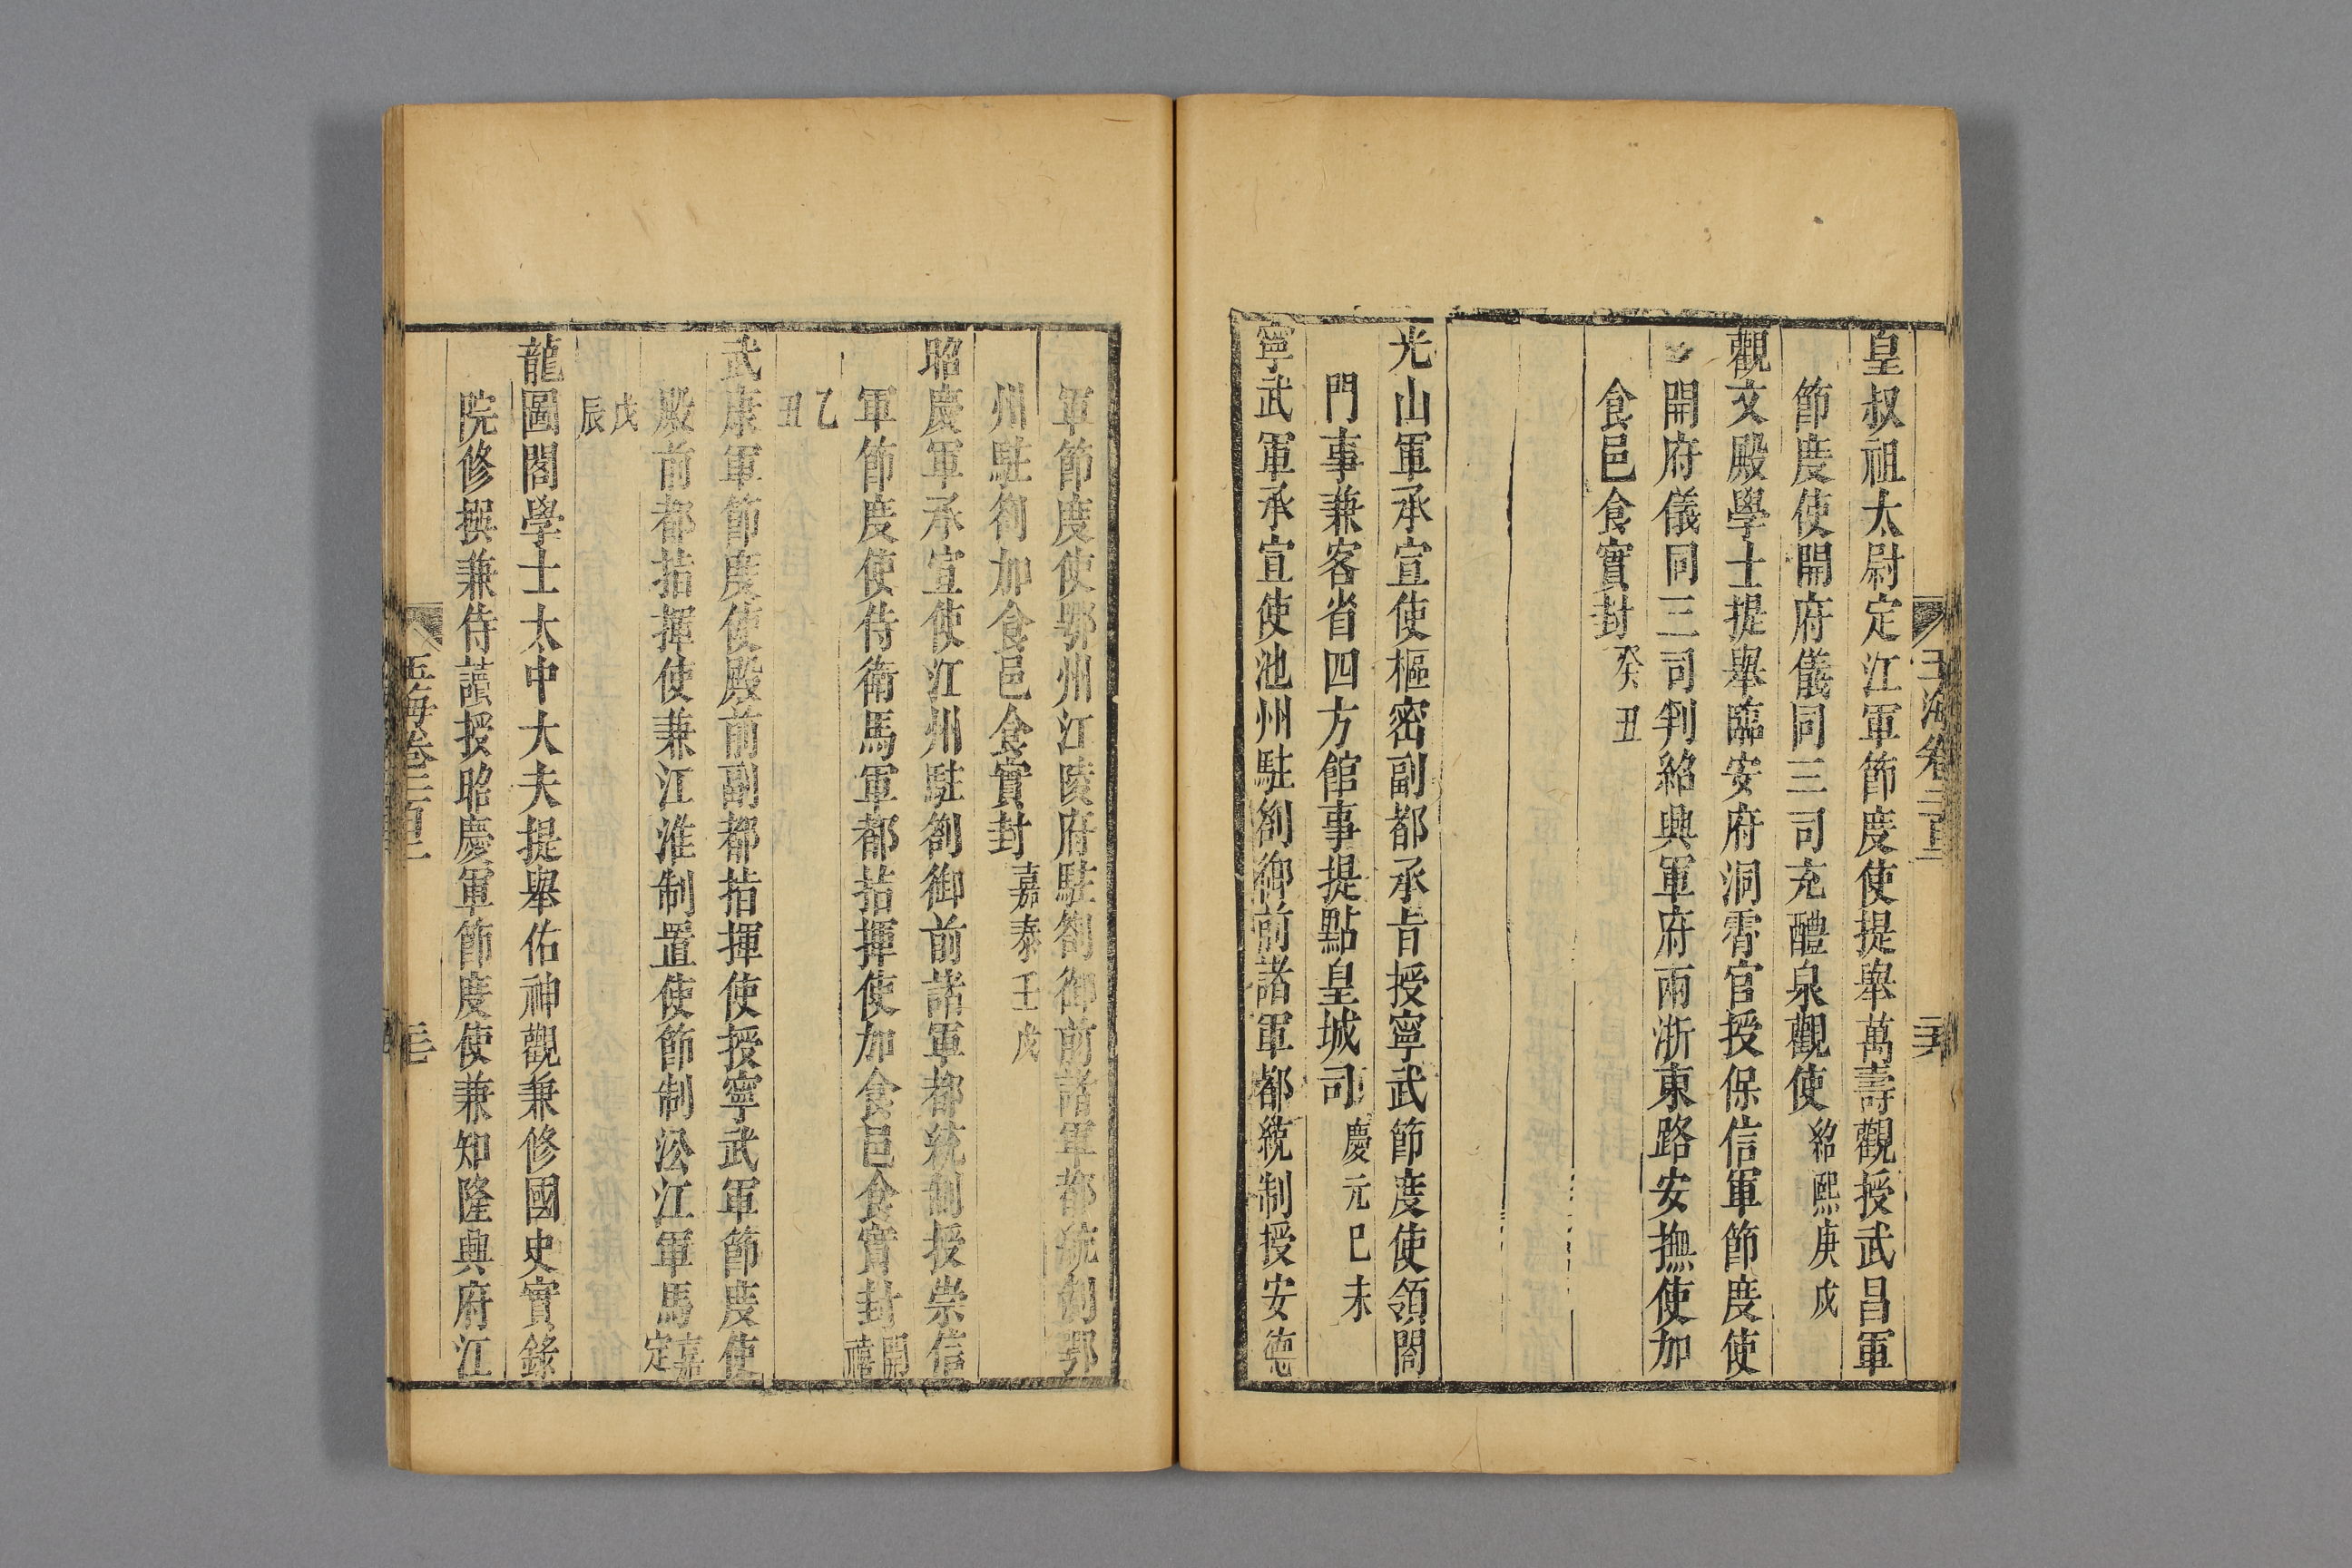 皇叔祖太尉定江軍節度使提舉萬壽觀授武昌軍
節度使開府儀同三司充醴泉觀使紹熙庚戌
觀文殿學士提舉臨安府洞霄宮授保信軍節度使
開府儀同三司判紹興軍府兩浙東路安撫使加
食邑食實封癸丑
光山軍承宣使樞密副都承旨授寧武節度使領閤
門事兼客省四方館事提點皇城司慶元己未
寧武軍承宣使池州駐劄御前諸軍都統制授安德
軍節度使鄂州江陵府駐劄御前諸軍都統制鄂
州駐劄加食邑食實封嘉泰壬戌
昭慶軍承宣使江州駐劄御前諸軍都統制授崇信
軍節度使侍衛馬軍都指揮使加食邑食實封開禧
乙丑
武康軍節度使殿前副都指揮使授寧武軍節度使
殿前都指揮使兼江淮制置使節制沿江軍馬嘉定
戊辰
龍圖閣學士太中大夫提舉佑神觀兼修國史實錄
院修撰兼侍讀授昭慶軍節度使兼知隆興府江
玉海卷二百二